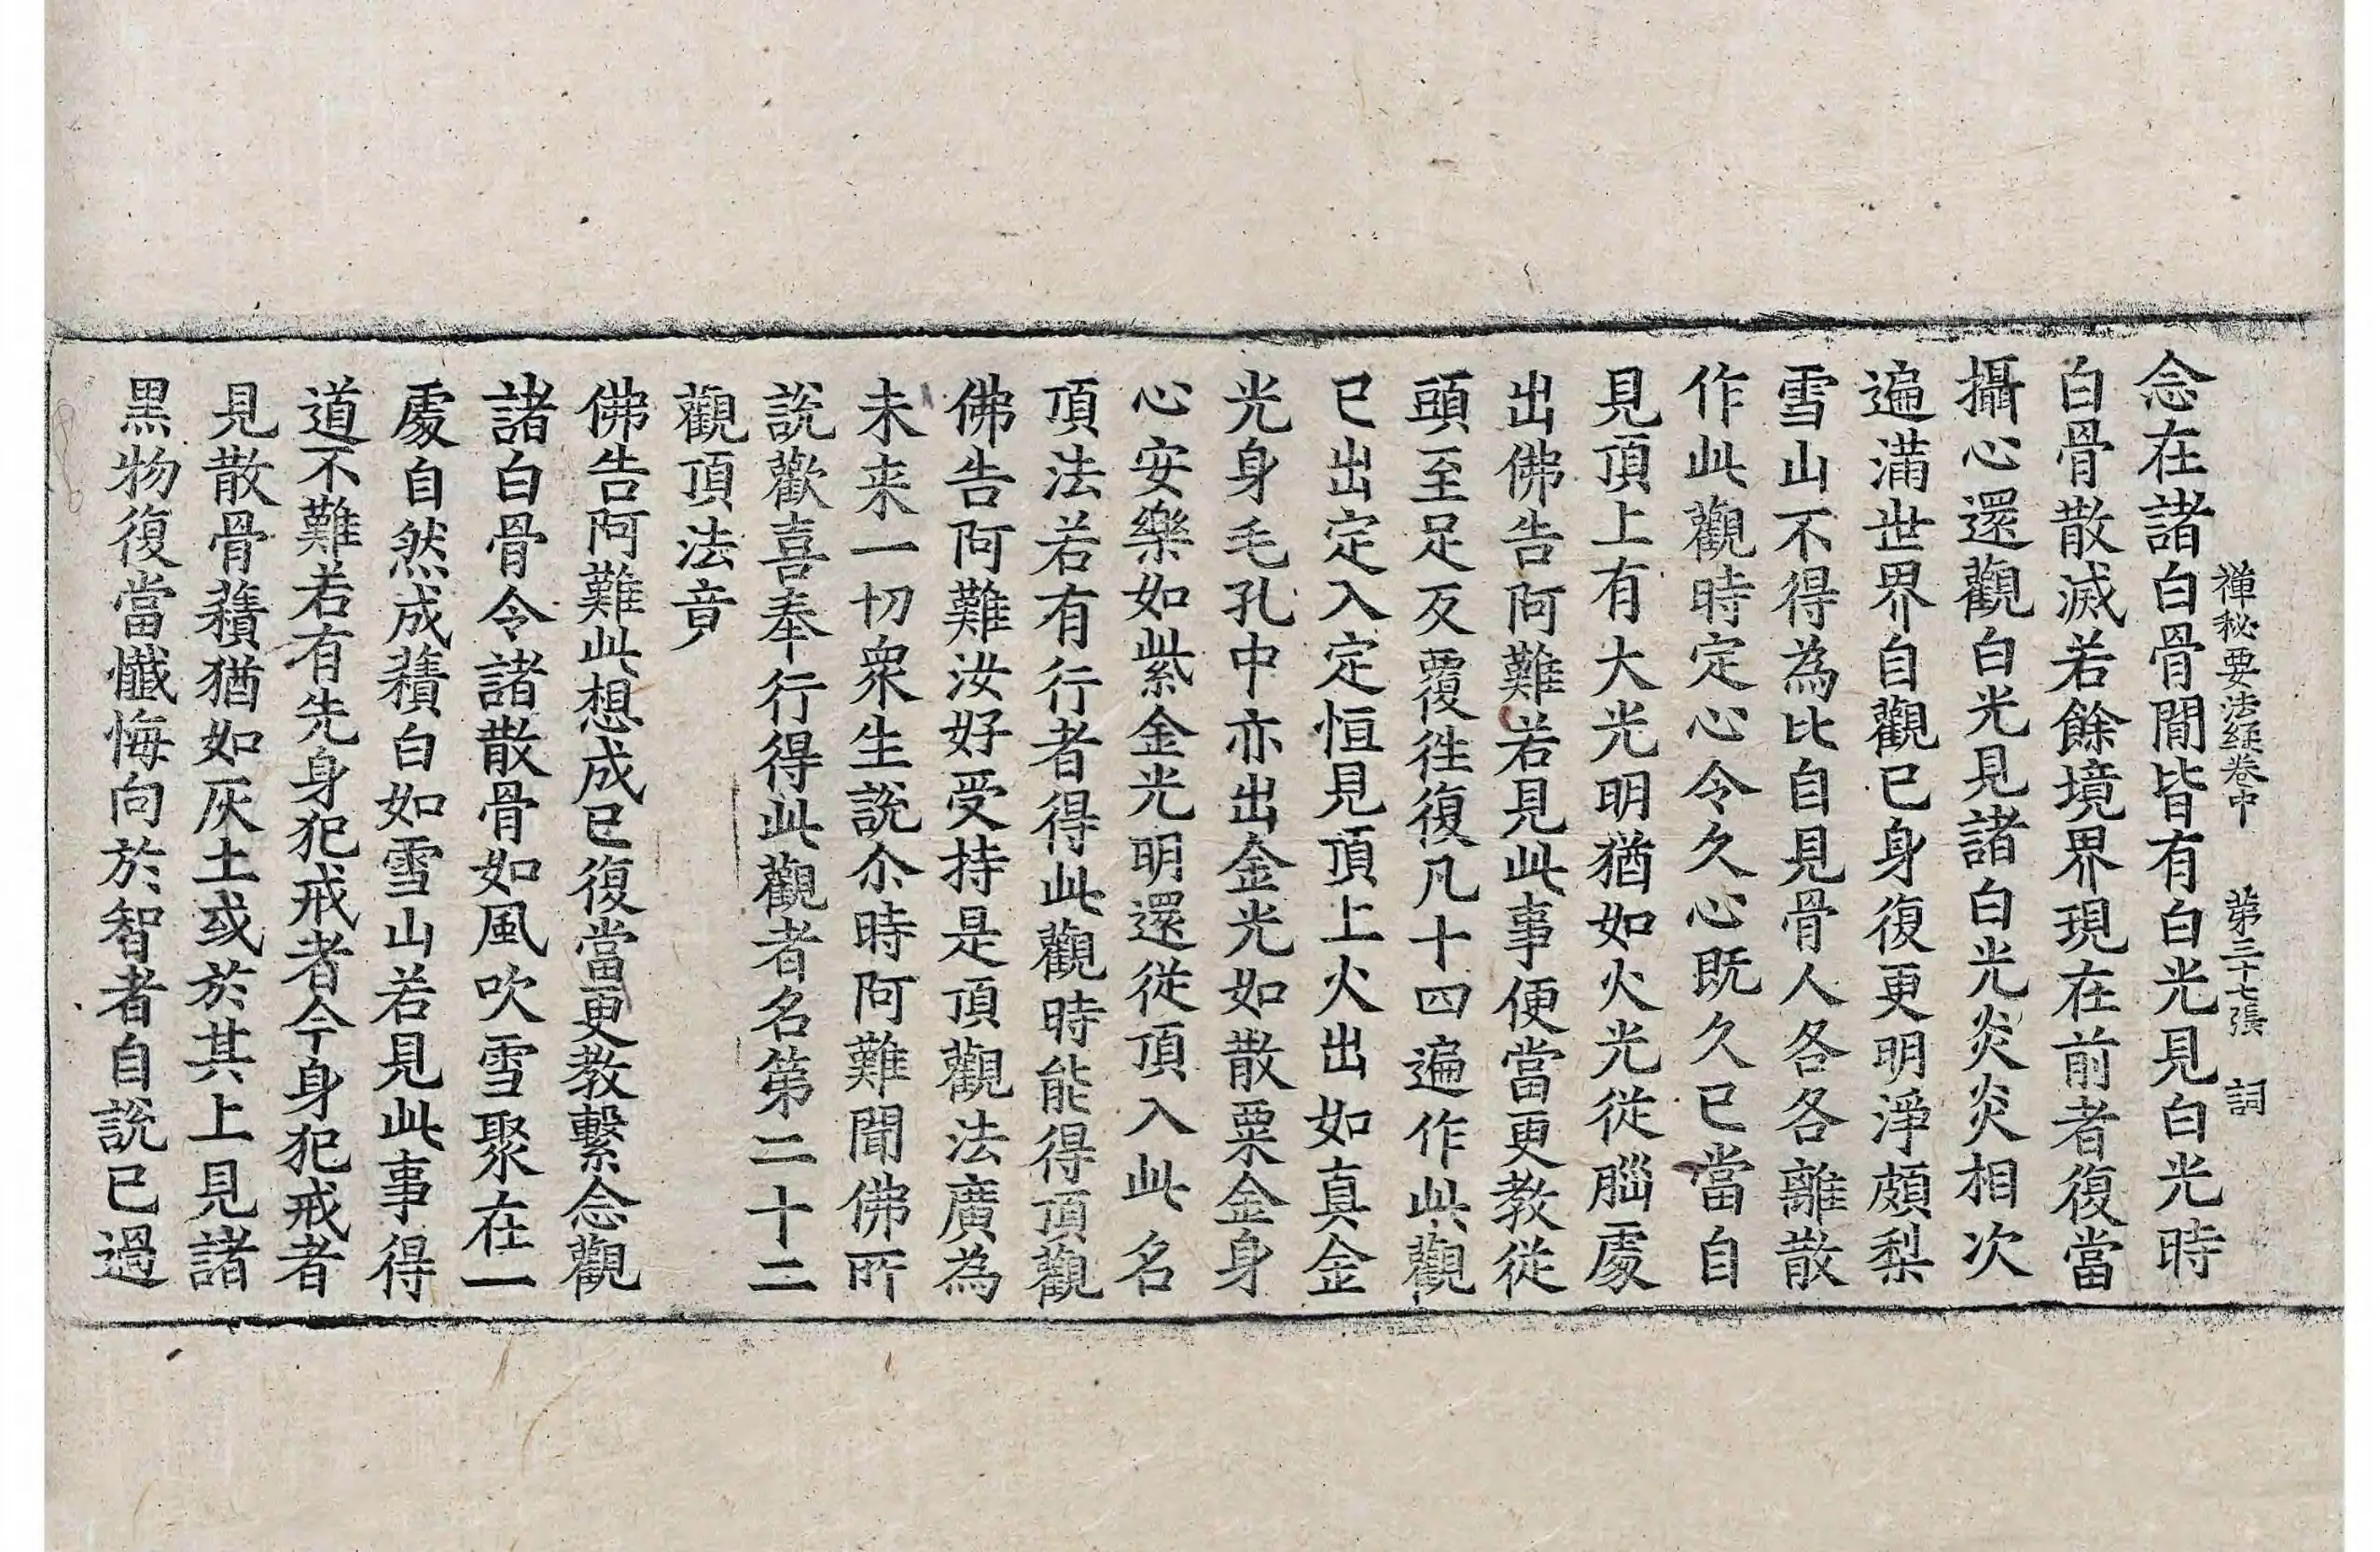 禅秘要法経卷中 苐三十七張 詞
念在諸白骨閒皆有白光見白光時
白骨散滅若餘境界現在前者復當
攝心還觀白光見諸白光炎炎相次
遍滿世界自觀已身復更明淨頗梨
雪山不得為比自見骨人各各離散
作此觀時定心令久心既久已當自
見頂上有大光明猶如火光從腦處
出佛告阿難若見此事便當更教從
頭至足反覆往復凡十四遍作此觀
已出定入定恒見頂上火出如真金
光身毛孔中亦出金光如散粟金身
心安樂如紫金光明還從頂入此名
頂法若有行者得此觀時能得頂觀
佛告阿難汝好受持是頂觀法廣為
未来一切衆生說尒時阿難聞佛所
說歡喜奉行得此觀者名第二十二
觀頂法竟
佛告阿難此想成已復當更教繫念觀
諸白骨令諸散骨如風吹雪聚在一
處自然成積白如雪山若見此事得
道不難若有先身犯戒者今身犯戒者
見散骨積猶如灰土或於其上見諸
黑物復當懺悔向於智者自說已過